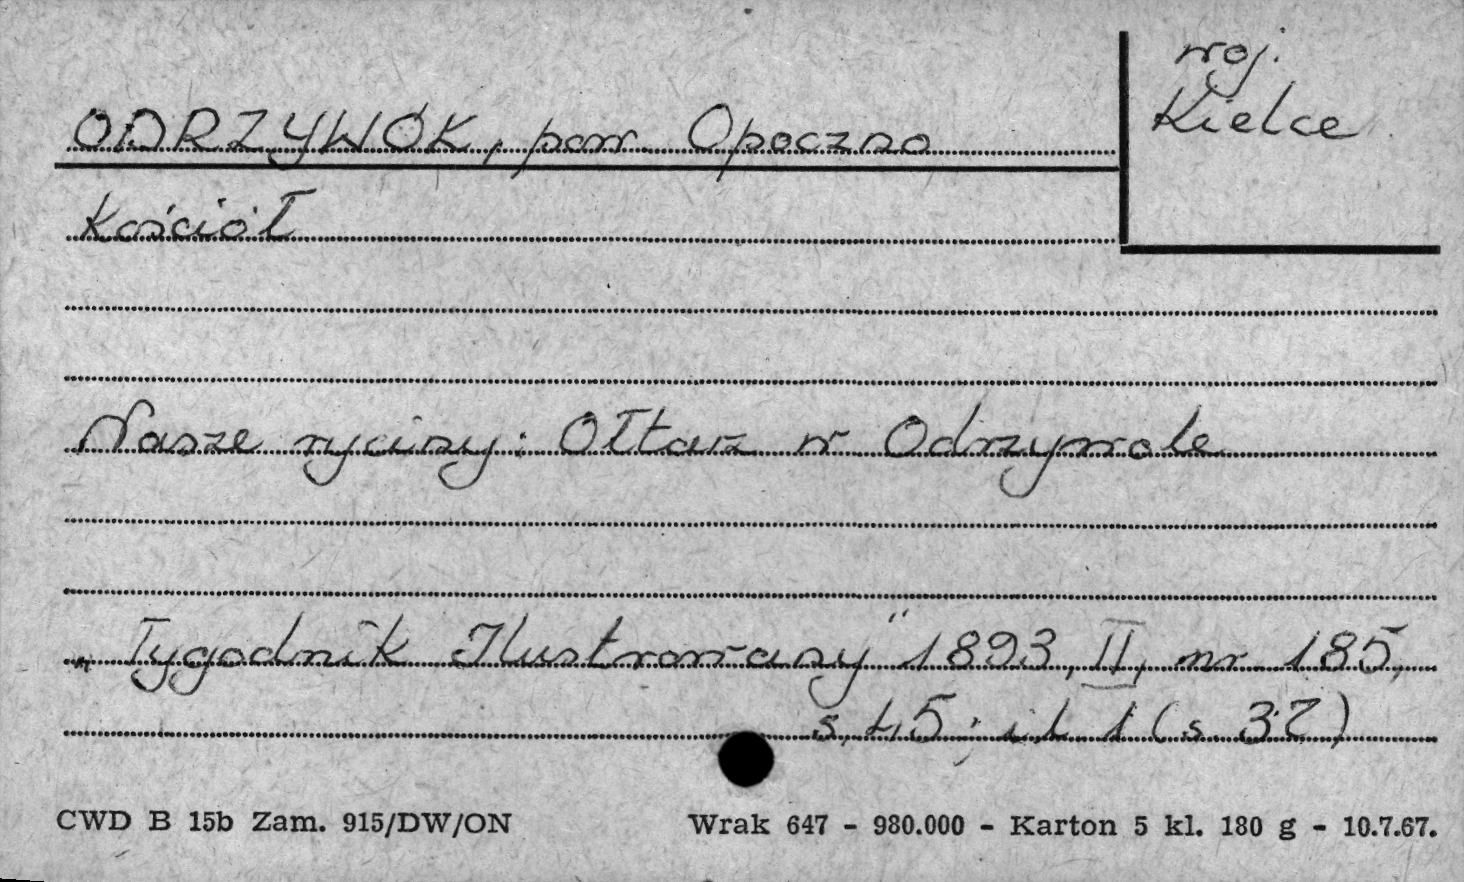 woj.
Kielce
ODRZYWÓK, pow. Opoczno
Kościół
Nasze ryciny: Ołtarz w Odrzywole
„Tygodnik Ilustrowany" 1893, II, nr 185,
s. 45; il. 1 (s. 37)
CWD B 15b Zam. 915/DW/ON
Wrak 647 - 980.000 - Karton 5 kl. 180 g - 10.7.67.